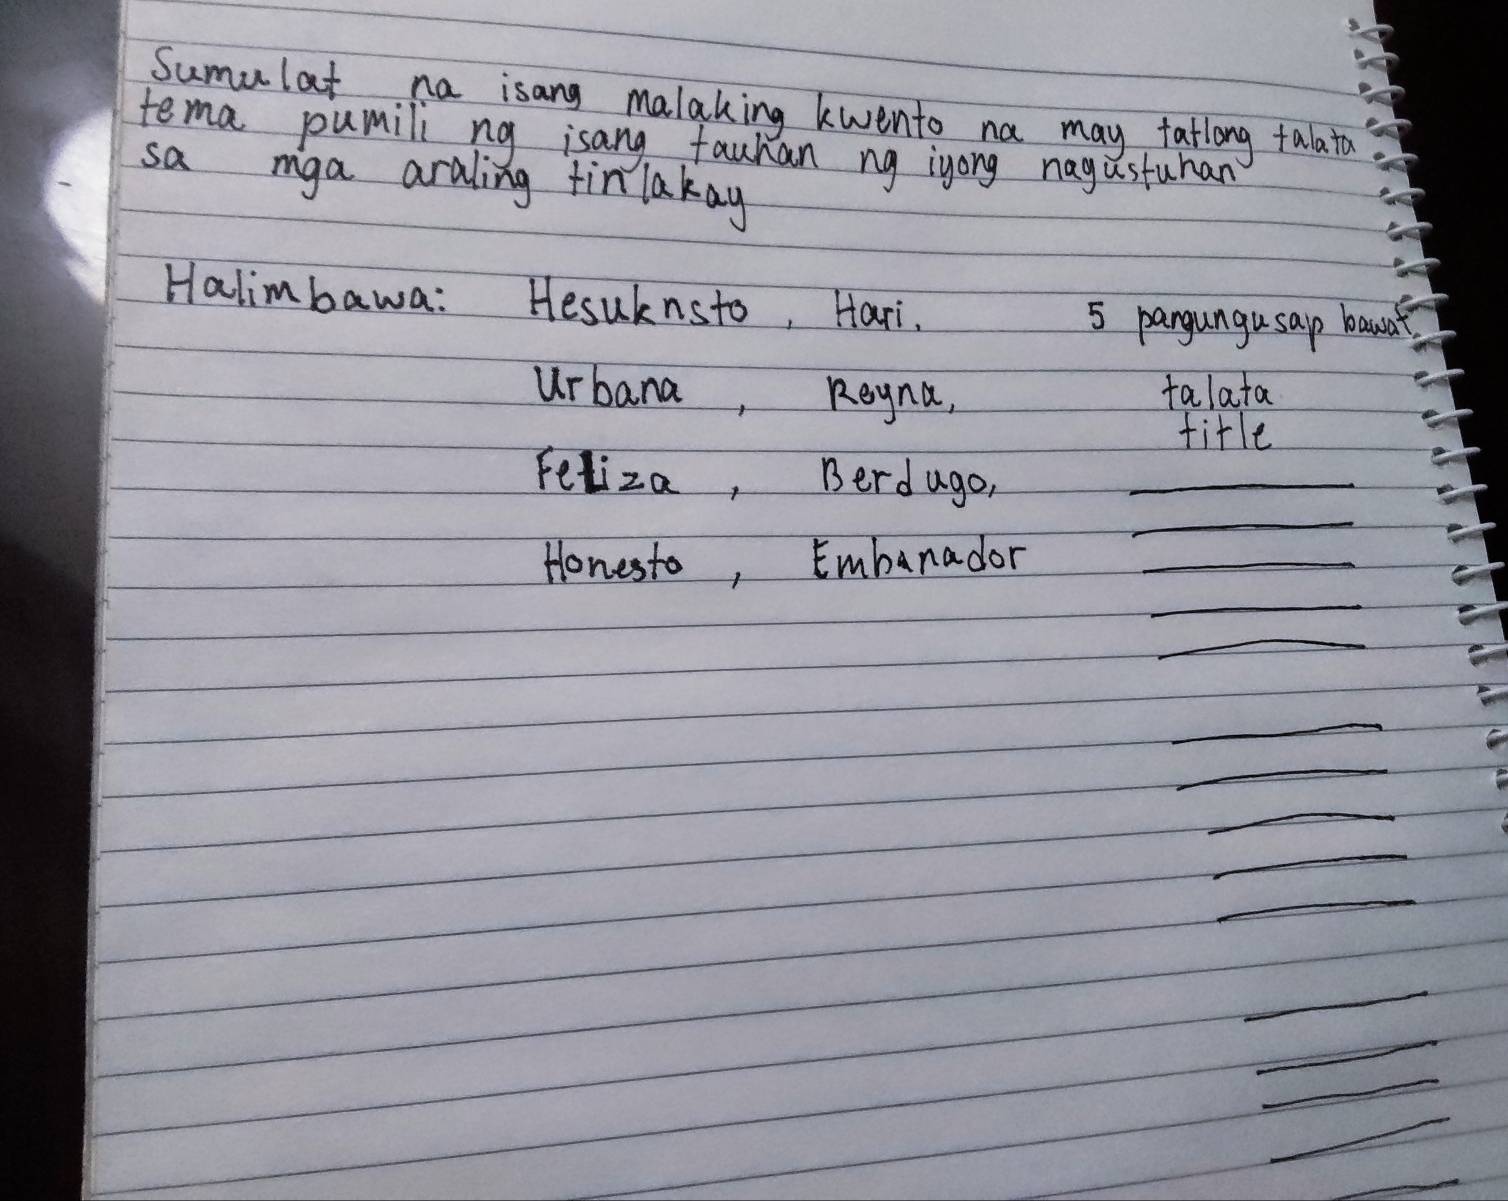 Sumulat na isang malaking kwento na may tatlong talata
tema pumili ng isang tauhan ng iyong nagustuhan
sa mga araling tinlakay
Halimbawa: Hesuknsto, Hari. 5 pangungusap bawat
Urbana, Reyna, talata
title
Feliza, Berdugo,
Honesto, Embanador